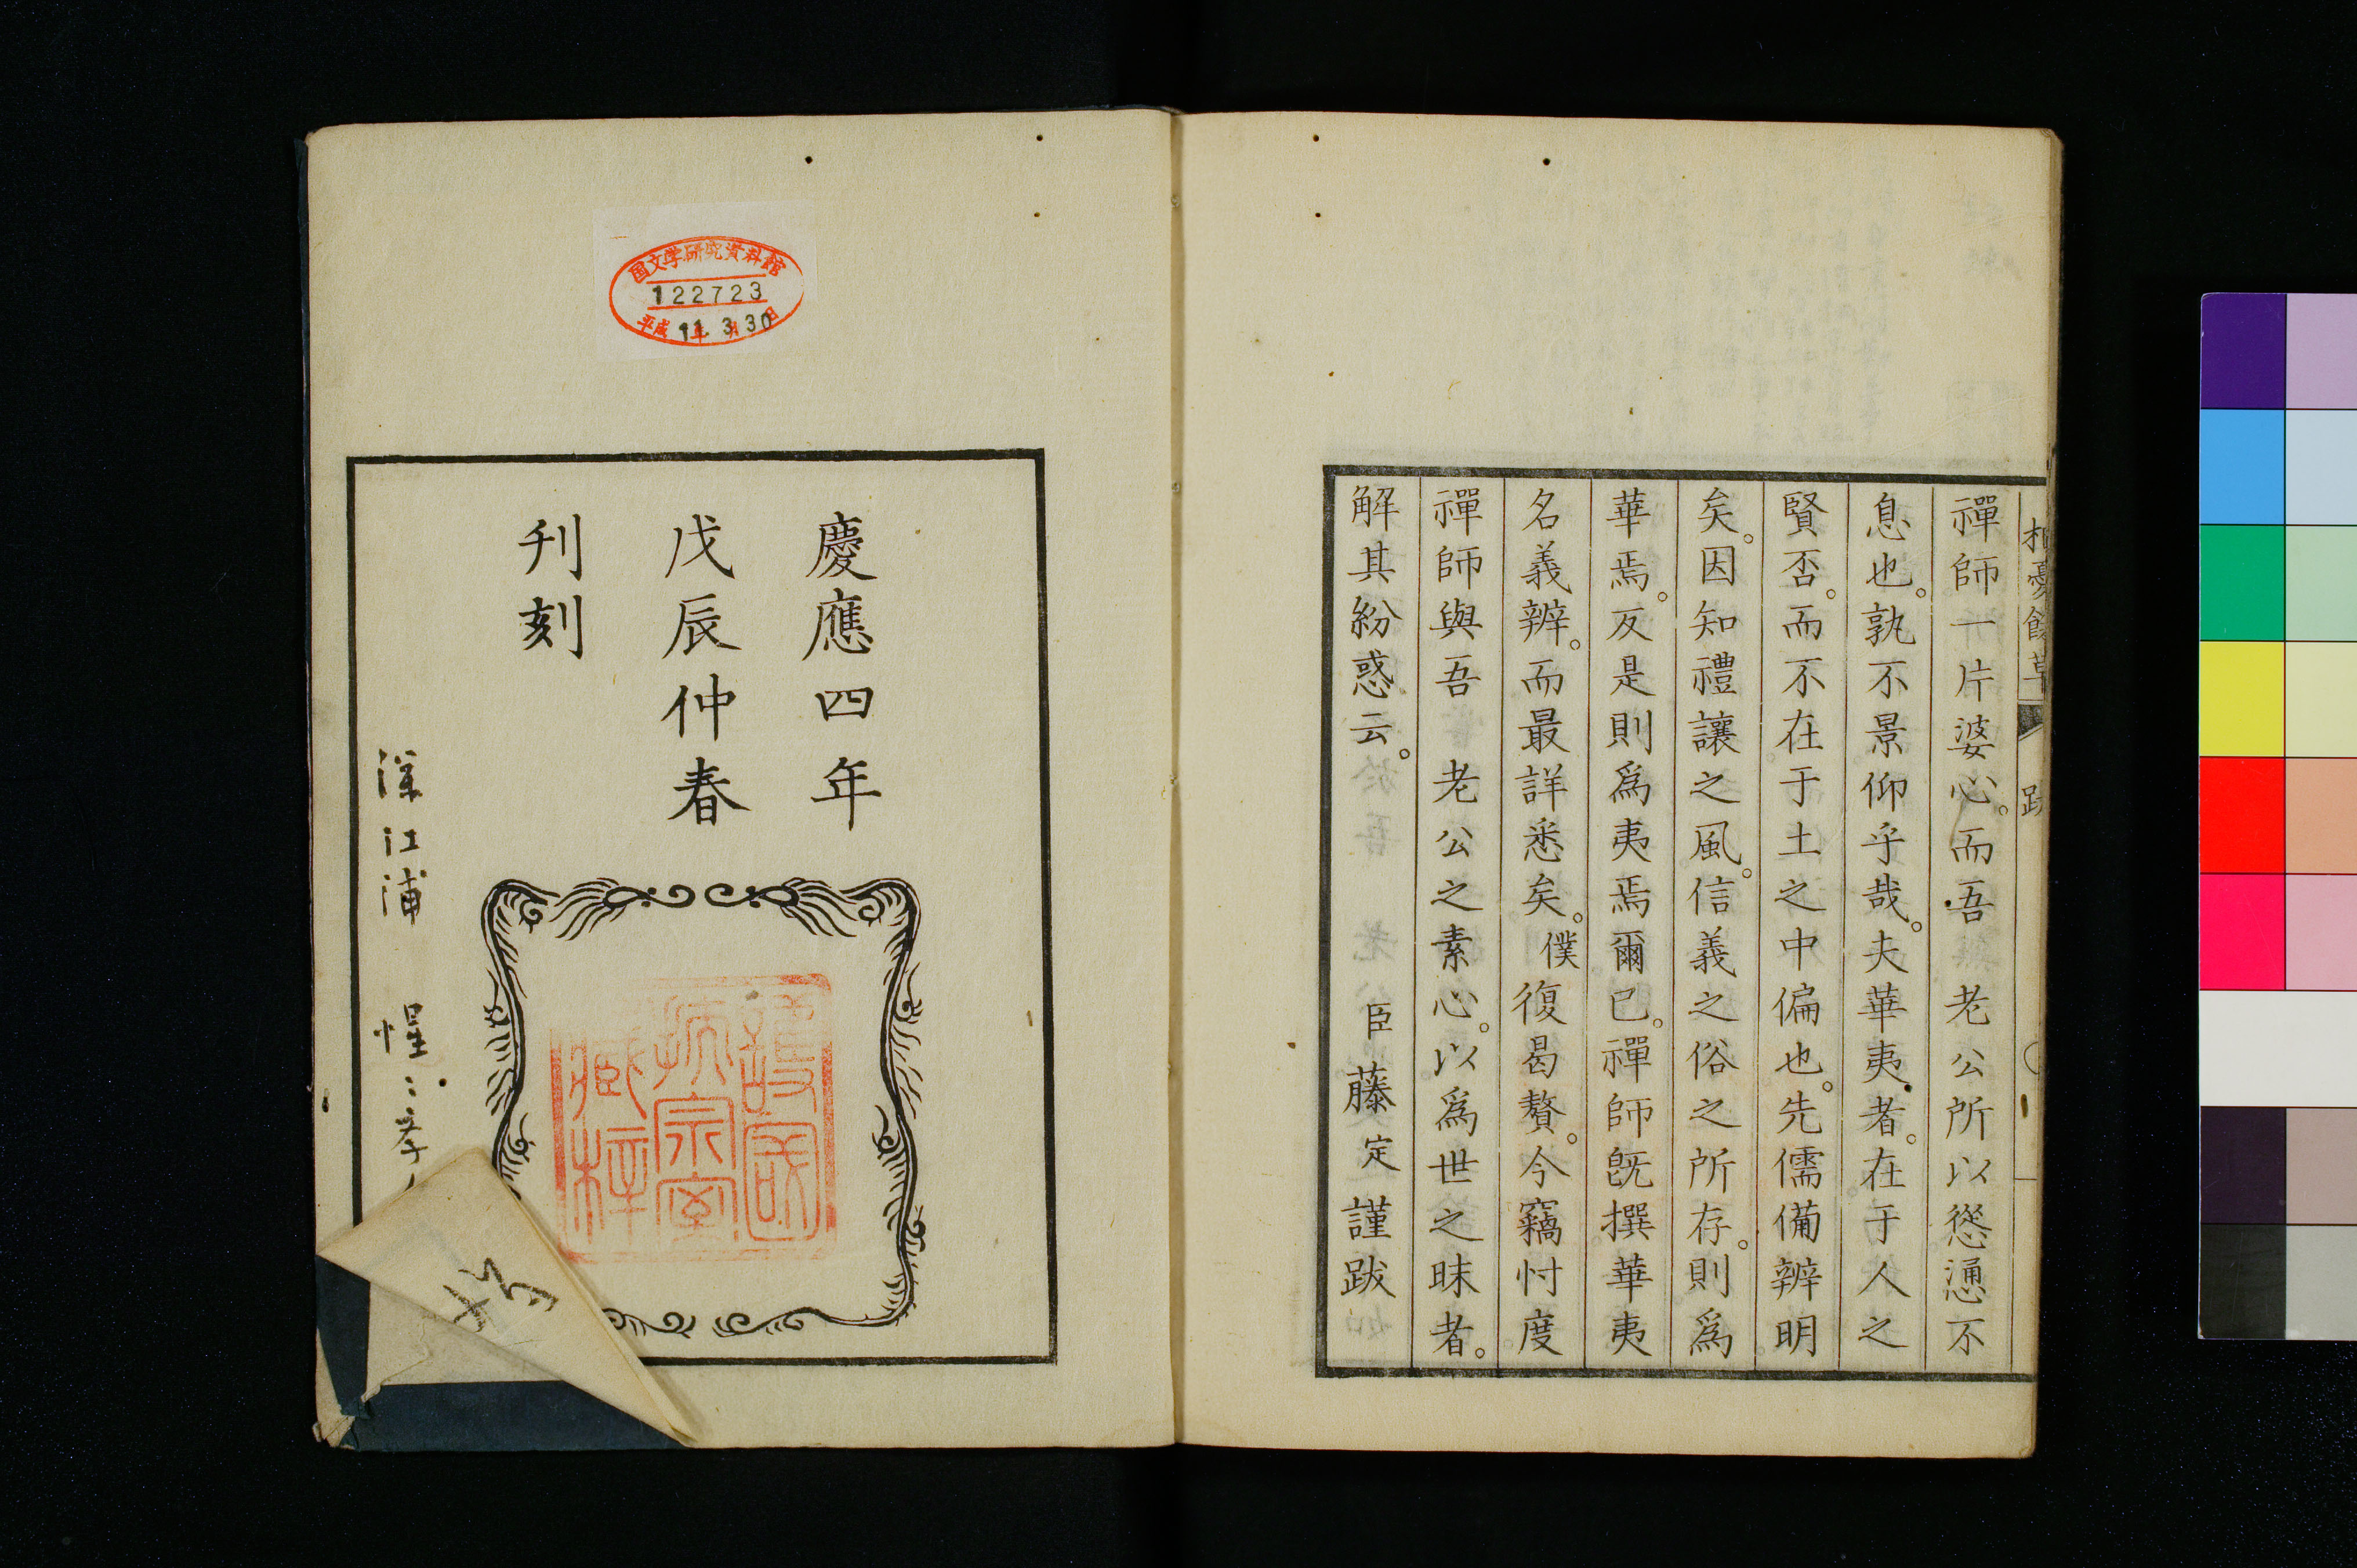 禪師一片婆心。而吾老公所以慫慂不
息也。孰不景仰乎哉。夫華夷者。在于人之
賢否。而不在于土之中偏也。先儒備辨明
矣。因知禮讓之風。信義之俗之所存。則爲
華焉。反是則爲夷焉爾已。禪師既撰華夷
名義辨。而最詳悉矣。僕復曷贅。今竊忖度
禪師與吾　老公之素心。以爲世之昧者。
解其紛惑云。
臣藤定謹跋
国文学研究資料館
122723
平成11年3月30日
慶應四年
戊辰仲春
刋刻
護國
扺宗室
臧梓
深江浦